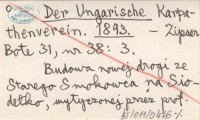 Der Ungarische Karpa-
thenverein. 1893. - Zipser
Bote 31, nr 38: 3.
Budowa nowej drogi ze
Starego Smokowca na Sio-
dełko, wytyczonej przez prof.
AT/011/0416/1